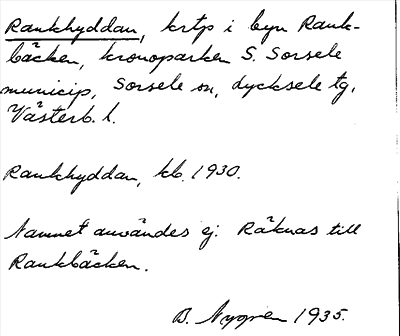 Rankhyddan, krtp i byn Rank-
bäcken, kronoparken S. Sorsele
municip, Sorsele sn, Lycksele tg,
Västerb. l.
Rankhyddan, kb. 1930.
Namnet användes ej. Räknas till
Rankbäcken.
B. Nygren 1935.